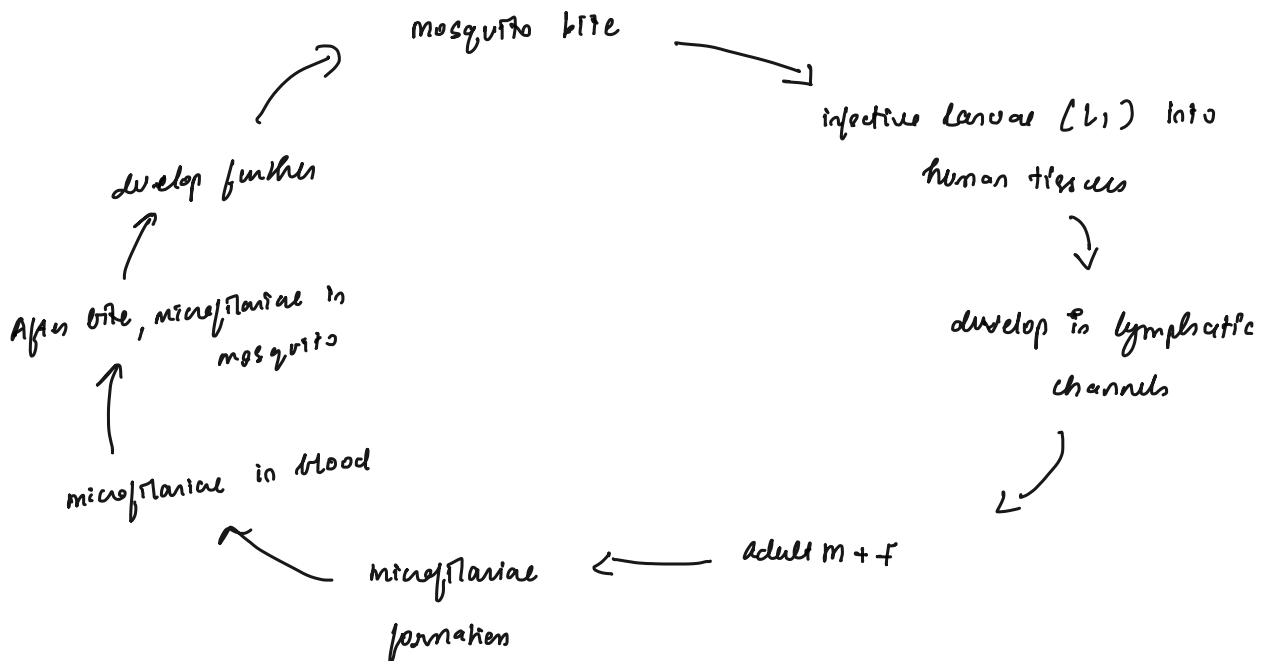 mosquito bite
infective larvae (L1) into
human tissues
develop in lymphatic
channels
adult m + f
microfilariae
formation
microfilariae in blood
After bite, microfilariae in
mosquito
develop further